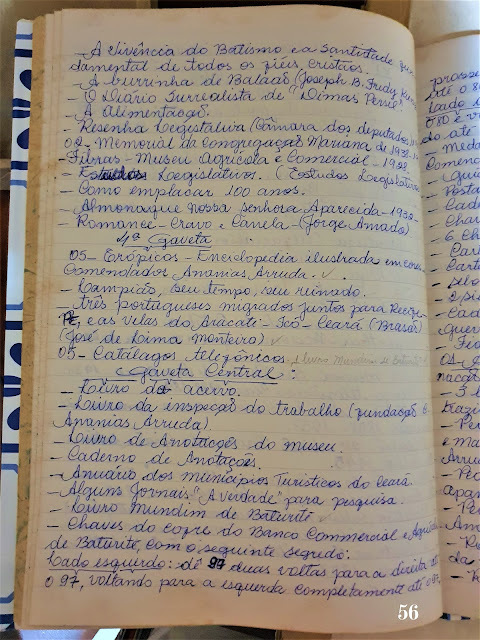 - A vivência do Batismo e a Santidade fun
damental de todos os fiéis cristãos.
- A burrinha de Balaão (Joseph B. Frudy
- O Diário Surrealista de "Dimas
- A Alimentação.
- Resenha Legislativa (Câmara dos deputados
02 - Memorial da Congregação Mariana de 1938-
- Fibras - Museu Agrícola e Comercial - 1928
- Estudos Legislativos. (Estudos Legislativos
- Como emplacar 100 anos.
- Almonaque Nossa Senhora Aparecida - 1932
- Romance - Cravo e Canela - (Jorge Amado)
4ª Gaveta
05 - Trópicos - Enciclopédia ilustrada em cores
Comendador Ananias Arruda. ✓ .
- Lampião, seu tempo, seu reinado.
- Três portugueses migrados juntos para Recife
PE, e as velas do Aracati - Icó - Ceará (Brasil)
(José de Lima Monteiro) ✓
05 - Catálagos telefônicos
Gaveta Central:
- Livro de acervo.
- Livro da inspeção do trabalho (fundação C.
Ananias Arruda)
- Livro de Anotações do museu.
- Caderno de Anotações.
- Anuário dos municípios Turísticos do Ceará.
- Alguns Jornais "A verdade" para pesquisa.
- Livro Mundim de Baturité
- Chaves do cofre do Banco Commercial e Agrícola
de Baturité, com o seguinte segredo:
Lado esquerdo: dê duas voltas para a direita até
o 97, voltando para a esquerda completamente até o
56
prosse
até o 80
Lado
080 e v
do até
- Meda
Comen
- Posta
- Cade
- Chav
- 6 Ch
- Car
- Cart
- Cad
Guer
nação
- 3 l
- Per
e ma
Arru
apan
- Pe
Am
da